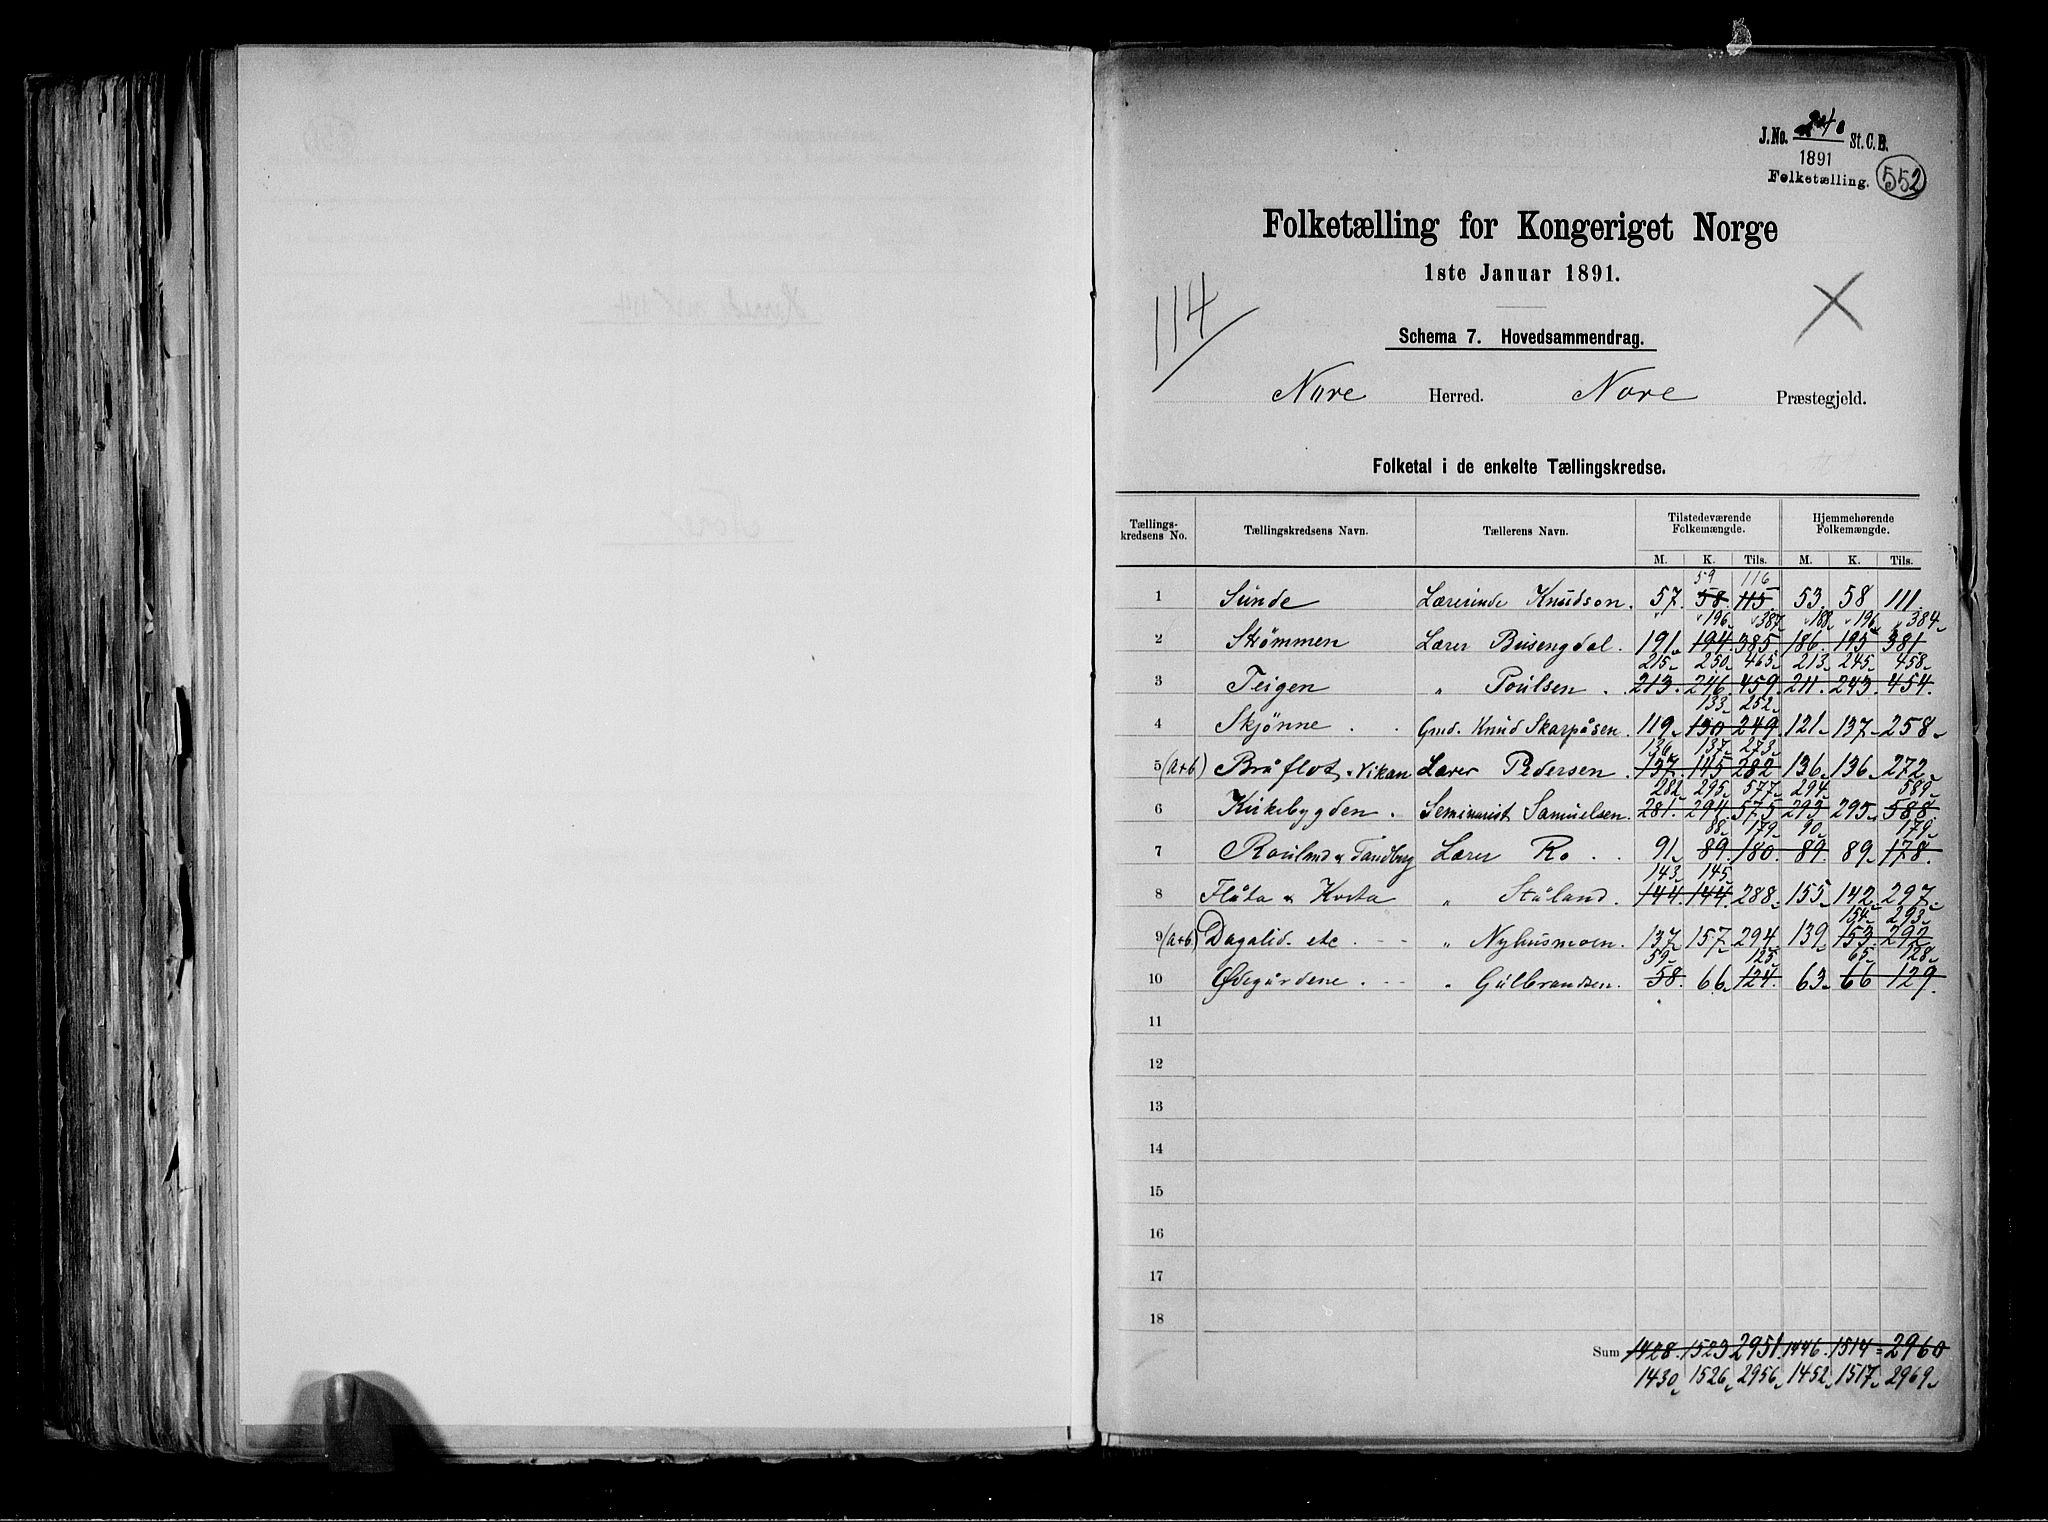 J.No. 240 St. C. B.
1891
Folketælling. 552
Folketælling for Kongeriget Norge
1ste Januar 1891.
114
Schema 7. Hovedsammendrag.
Nore Herred. Nore Præstegjeld.
Folketal i de enkelte Tællingskredse.
Tællings-kredsens No. Tællingskredsens Navn. Tællerens Navn. Tilstedeværende Folkemængde. Hjemmehørende Folkemængde.
M. K. Tils. M. K. Tils.
59 116
1 Sunde Lærerinde Knudson. 57. 58. 115. 53. 58 111.
196 387 188 196 384
2 Strømmen Lærer Busengdal. 191 194. 385. 186. 195 381
215 250 465 213 245 458
3 Teigen " Poulsen . 213. 246. 459. 211. 243. 454.
133 252
4 Skjønne . . Gmd. Knud Skarpåsen. 119 130 249. 121 137 258
136 137 273
5 (a+b) Bråflot, Vikan Lærer Pedersen . 137. 145 282 136 136 272
282 295 577 294 589
6 Kirkebygden . Seminarist Samuelsen. 281. 294 575 293 295. 588.
88 179 90 179
7 Rouland & Tandberg Lærer Ro . . 91 89. 180. 89. 89 178.
143 145
8 Flåta & Hvsta " Ståland. 144. 144. 288. 155 142 297.
154 293
9 (a+b) Dagalid. etc . - - " Nyhusmoen. 137 157 294 139 153 292
59 125 65 128
10 Ødegårdene . - - " Gulbrandsen. 58. 66. 124. 63 66 129.
11
12
13
14
15
16
17
18
Sum 1428. 1523 2951. 1446. 1514 = 2960
1430 1526 2956 1452 1517 2969